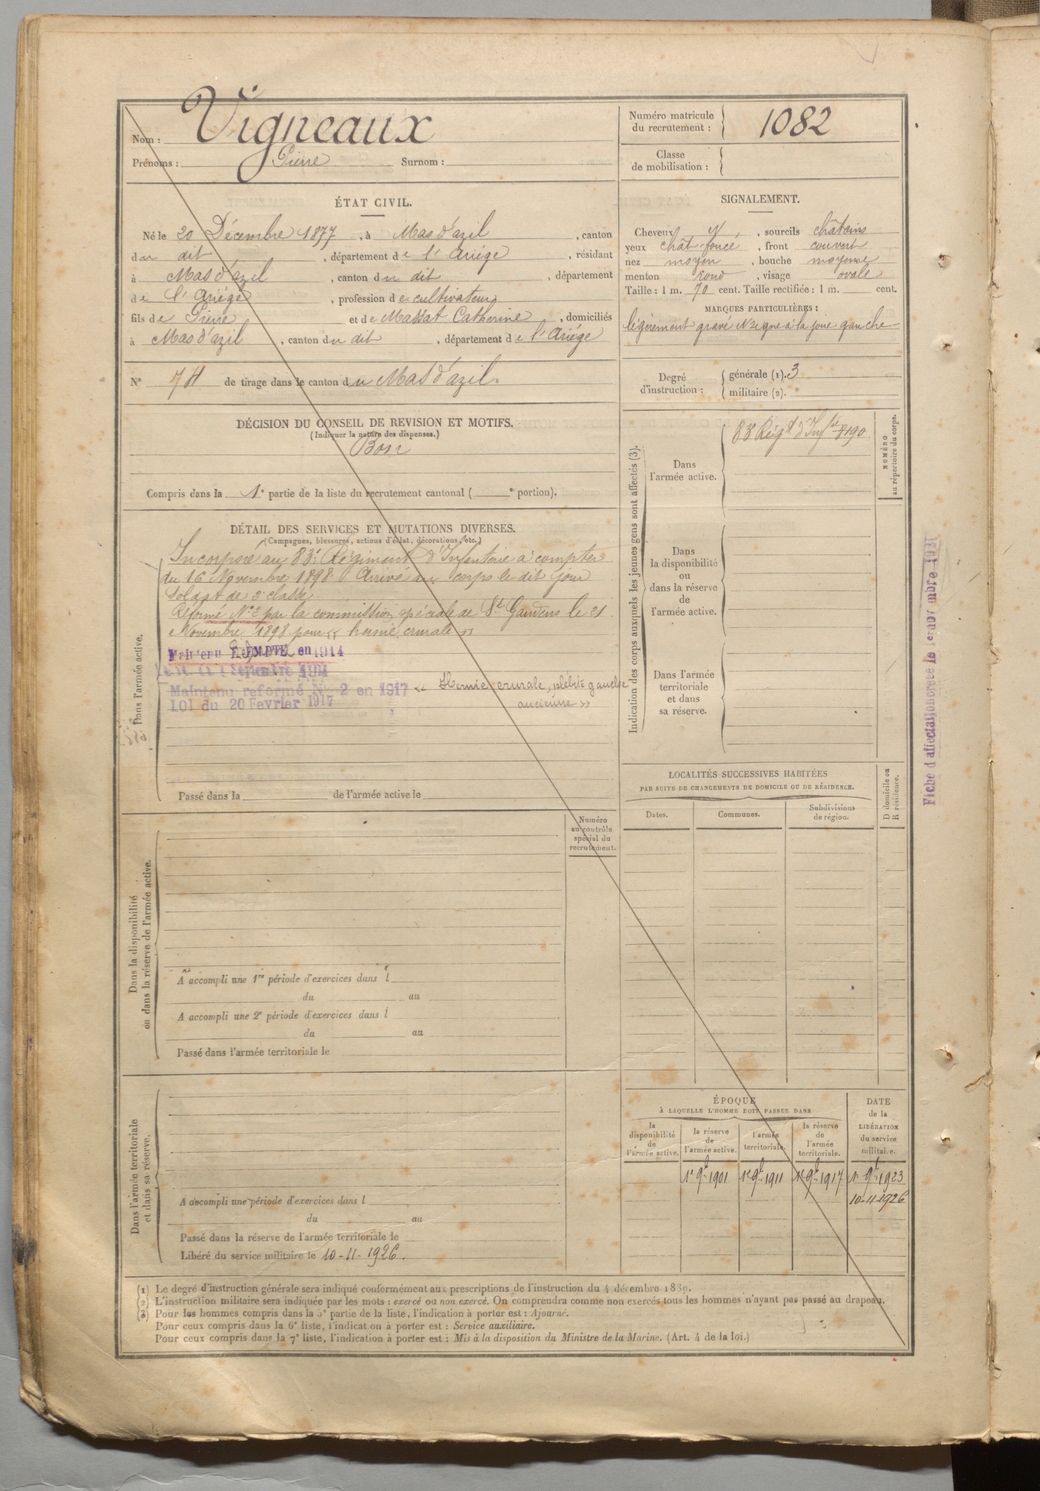 Nom : Vigneaux
Prénoms : Pierre Surnom :
Numéro matricule du recrutement : 1082
Classe de mobilisation :
ÉTAT CIVIL.
Né le 20 Décembre 1877, à Mas d'azil, canton
du dit, département de l'Ariège, résidant
à Mas d'azil, canton du dit, département
de l'Ariège, profession de cultivateur
fils de Pierre et de Massat Catherine, domiciliés
à Mas d'azil, canton du dit, département de l'Ariège
N° de tirage dans le canton du Mas d'azil
SIGNALEMENT.
Cheveux, sourcils châtains
yeux chât. foncé, front couvert
nez moyen, bouche moyenne
menton rond, visage ovale
Taille : 1 m. 70 cent. Taille rectifiée : 1 m. cent.
MARQUES PARTICULIÈRES :
légèrement gravé à la joue gauche
Degré d'instruction : générale (1). 3
militaire (2).
DÉCISION DU CONSEIL DE REVISION ET MOTIFS.
(Indiquer la nature des dispenses.)
Bon
Compris dans la 1e partie de la liste du recrutement cantonal ( e portion).
DÉTAIL DES SERVICES ET MUTATIONS DIVERSES.
(Campagnes, blessures, actions d'éclat, décorations, etc.)
Dans l'armée active.
Incorporé au 83e Régiment d'Infanterie à compter
du 16 Novembre 1898 Arrivé au corps le dit jour
Soldat de 2e classe.
Réformé N° 2 par la commission spéciale de St Gaudens le 21
Novembre 1898 pour "hernie crurale"
Maintenu EXEMPTÉ en 1914
Septembre 1914
Maintenu réformé N° 2 en 1917 "Hernie crurale, gauche
LOI du 20 Février 1917 ancienne"
Passé dans la de l'armée active le
Indication des corps auxquels les jeunes gens sont affectés (3).
Dans l'armée active.
83e Régt d'Inftie 8190
NUMÉRO au répertoire du corps.
Dans la disponibilité ou dans la réserve de l'armée active.
Dans l'armée territoriale et dans sa réserve.
Fiche d'affectation
LOCALITÉS SUCCESSIVES HABITÉES
PAR SUITE DE CHANGEMENTS DE DOMICILE OU DE RÉSIDENCE.
Dates. Communes. Subdivisions de région. D domicile ou R résidence.
Numéro au contrôle spécial du recrutement.
Dans la disponibilité ou dans la réserve de l'armée active.
A accompli une 1re période d'exercices dans l
du au
A accompli une 2e période d'exercices dans l
du au
Passé dans l'armée territoriale le
Dans l'armée territoriale et dans sa réserve.
A accompli une période d'exercices dans l
du au
Passé dans la réserve de l'armée territoriale le
Libéré du service militaire le 10-11-1926.
ÉPOQUE
À LAQUELLE L'HOMME DOIT PASSER DANS
la disponibilité de l'armée active. la réserve de l'armée active. l'armée territoriale. la réserve de l'armée territoriale.
DATE de la LIBÉRATION du service militaire.
1r 9bre 1901 1r 9bre 1911 1r 9bre 1917 1r 9bre 1923
10-11-1926
(1) Le degré d'instruction générale sera indiqué conformément aux prescriptions de l'instruction du 4 décembre 1889.
(2) L'instruction militaire sera indiquée par les mots : exercé ou non exercé. On comprendra comme non exercés tous les hommes n'ayant pas passé au drapeau.
(3) Pour les hommes compris dans la 5e partie de la liste, l'indication à porter est : Ajourné.
Pour ceux compris dans la 6e liste, l'indication à porter est : Service auxiliaire.
Pour ceux compris dans la 7e liste, l'indication à porter est : Mis à la disposition du Ministre de la Marine. (Art. 4 de la loi.)